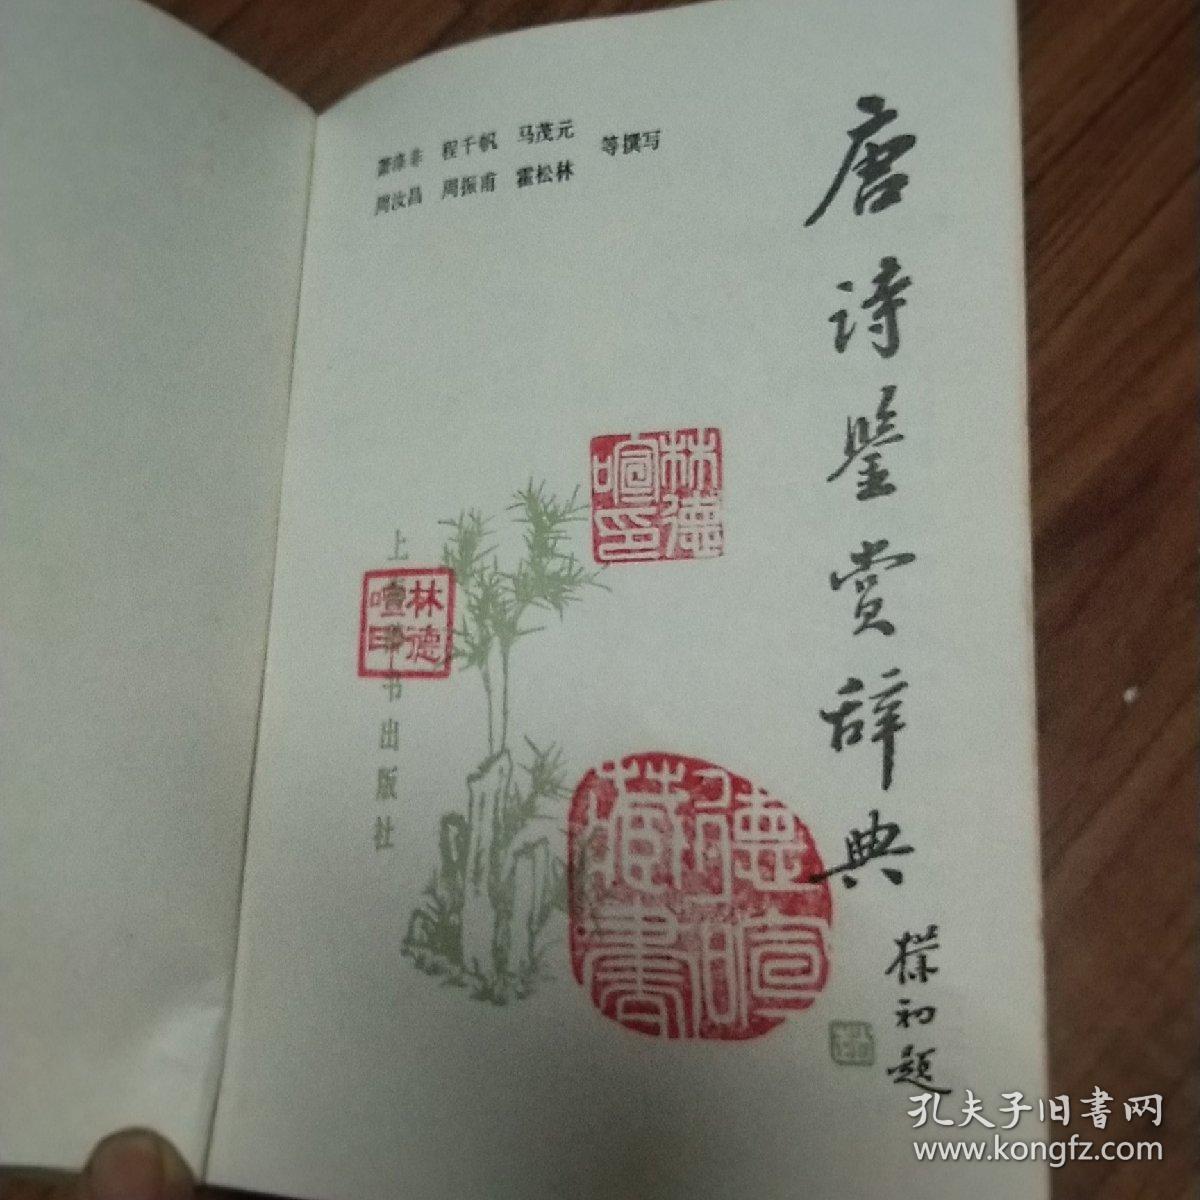 萧涤非 程千帆 马茂元
周汝昌 周振甫 霍松林
等撰写
唐诗鉴赏辞典
朴初题
林德喧印
林德喧印
德喧藏书
上海辞书出版社
孔夫子旧书网
www.kongfz.com